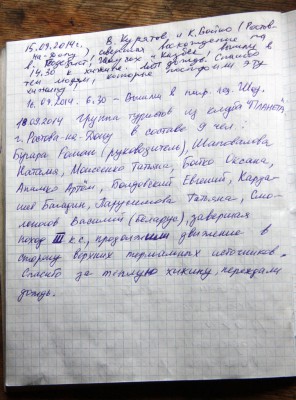 15.09.2014г. В. Куратов, и К. Бойко (Ростов-
на-Дону), совершая восхождение на
в. Казбек, вышли в
14.30 к хижине. Идёт дождь. Спасибо
тем людям, которые построили эту
хижину
16.09.2014 - 6.30 - Вышли в напр.
18.09.2014 Группа туристов из клуба "Планета"
г. Ростова-на-Дону в составе 9 чел.:
Бугара Роман (руководитель), Шаповалова
Наталия, Моисеенко Татьяна, Бойко Оксана,
Ананко Артём, Болдовский Евгений, Карда-
Татьяна, Смо-
Василий (Беларусь), завершая
поход III к.с., продолжили движение в
сторону верхних термальных источников.
Спасибо за тёплую хижину, переждали
дождь.